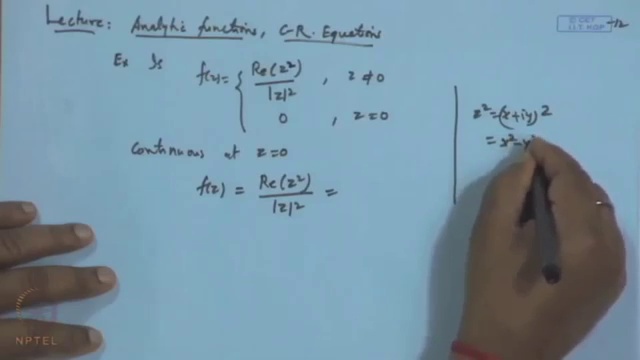 Lecture: Analytic functions, C-R. Equations
© CET
I.I.T. KGP
Ex Is f(z) = { Re(z²) / |z|² , z ≠ 0
0 , z = 0
continuous at z = 0
f(z) = Re(z²) / |z|² =
z² = (x + iy)²
= x² - y²
NPTEL